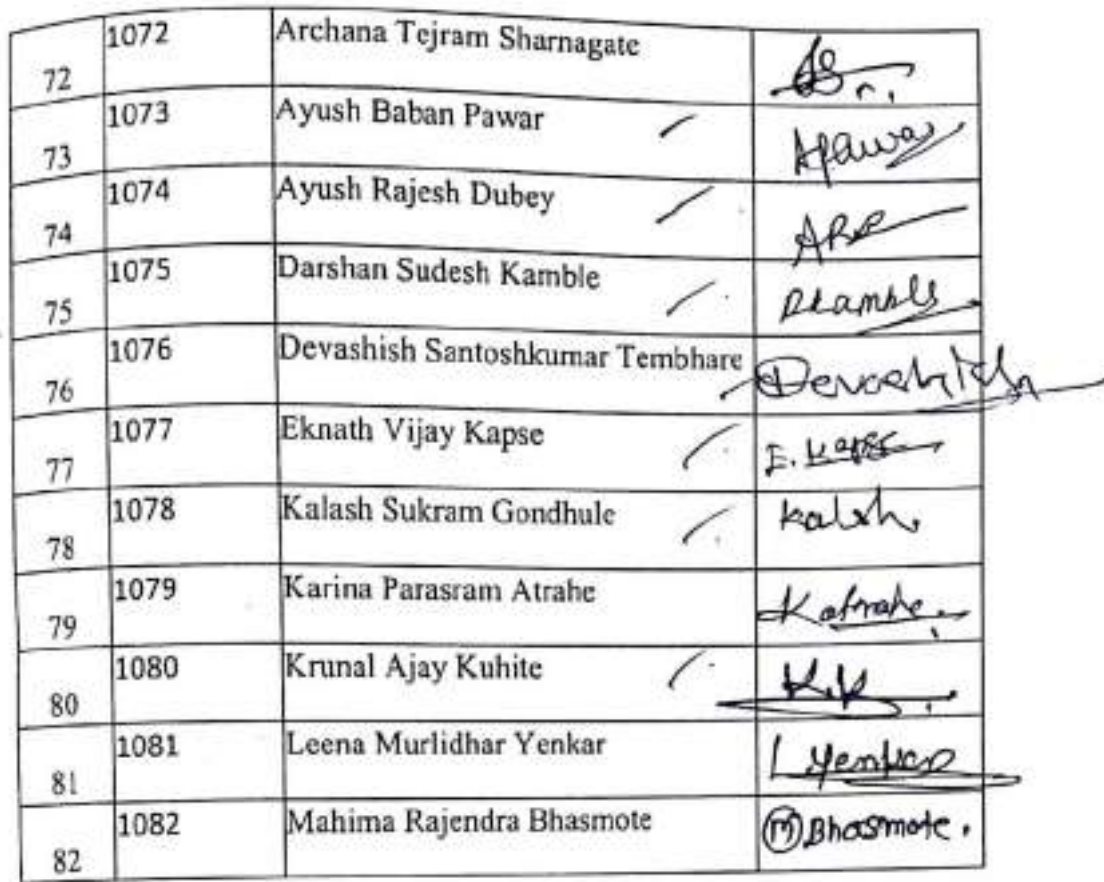 72 1072 Archana Tejram Sharnagate
73 1073 Ayush Baban Pawar APawar
74 1074 Ayush Rajesh Dubey
75 1075 Darshan Sudesh Kamble DKamble
76 1076 Devashish Santoshkumar Tembhare Devashish
77 1077 Eknath Vijay Kapse E. Kapse
78 1078 Kalash Sukram Gondhule Kalash
79 1079 Karina Parasram Atrahe Katrahe.
80 1080 Krunal Ajay Kuhite K.K.
81 1081 Leena Murlidhar Yenkar LYenkar
82 1082 Mahima Rajendra Bhasmote M Bhasmote.